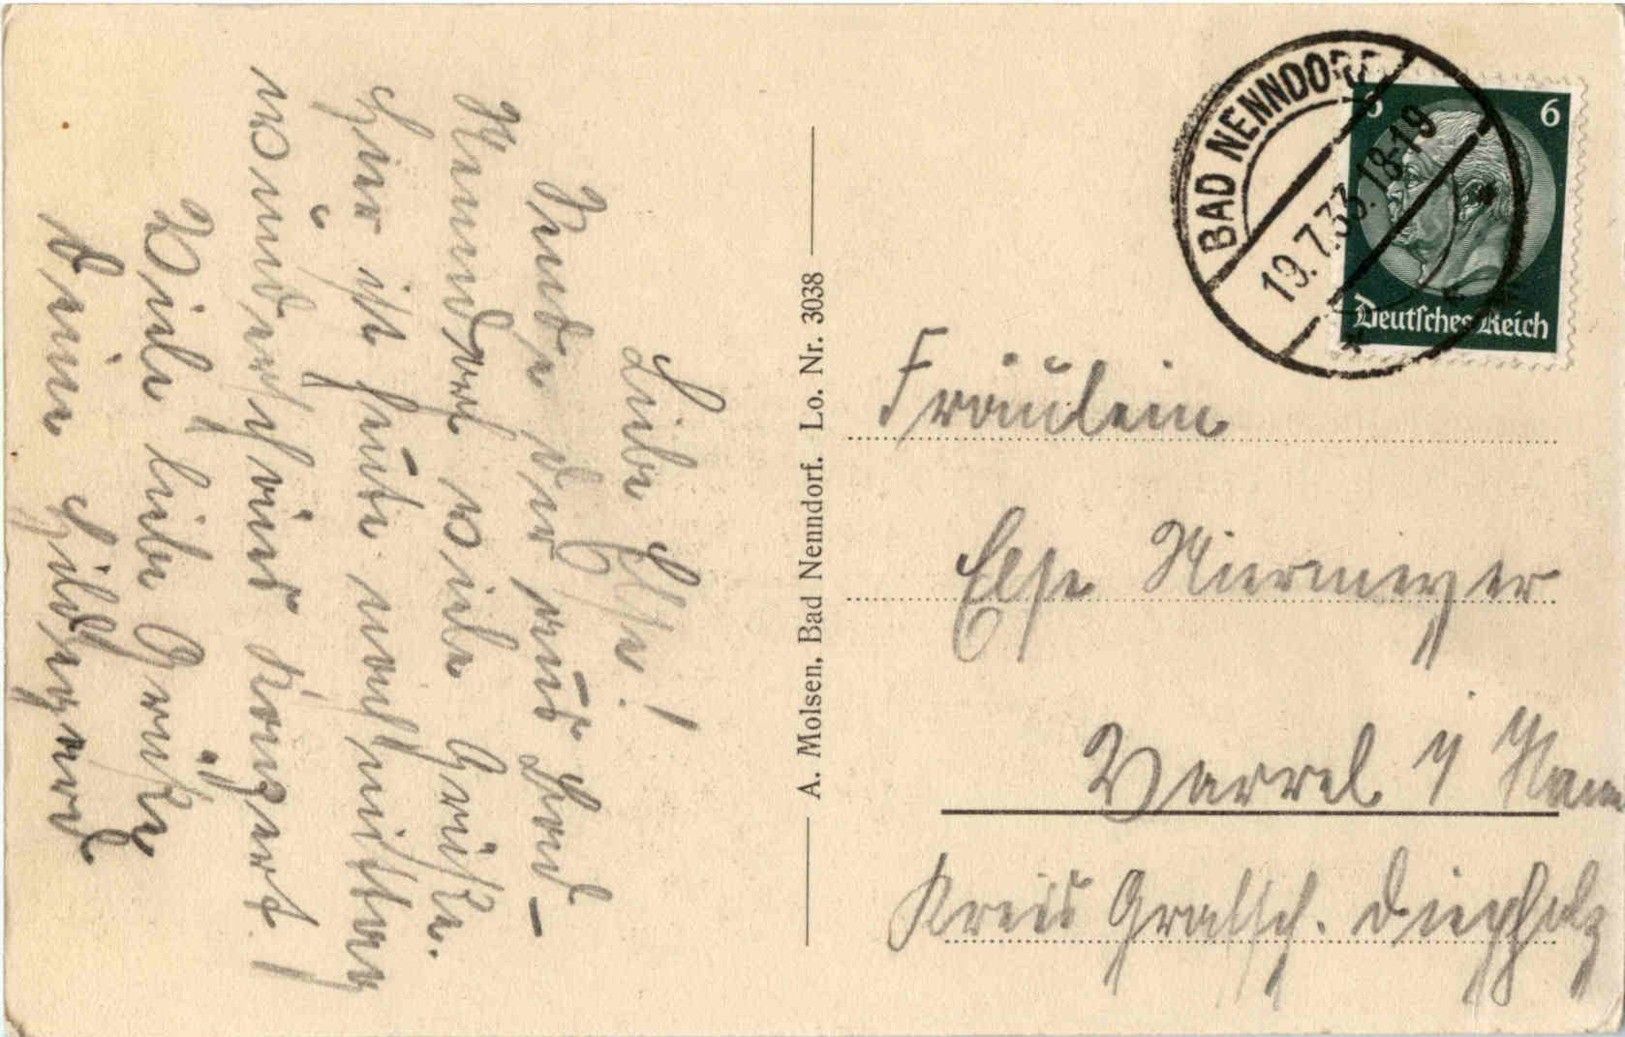 Liebe Else!
Sende dir aus Bad-
Nenndorf viele Grüße.
Hier ist heute nachmittag
wunderschönes Konzert!
Viele liebe Grüße
Deine Hildegard
A. Molsen, Bad Nenndorf. Lo. Nr. 3038
BAD NENNDORF
19.7.33.18-19
6 6
Deutsches Reich
Fräulein
Else Niermeyer
Varrel
Kreis Grafsch. Diepholz